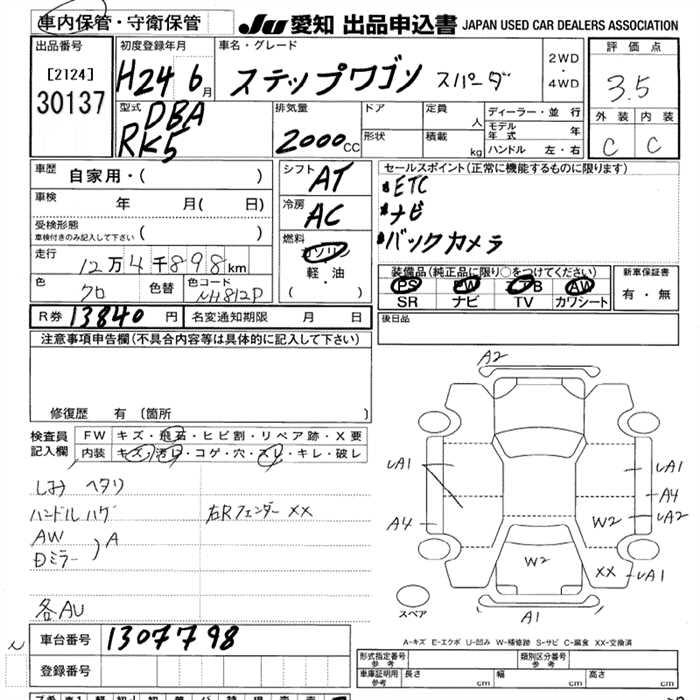 車内保管・守衛保管 JU 愛知 出品申込書 JAPAN USED CAR DEALERS ASSOCIATION
出品番号 初度登録年月 車名・グレード 2WD・4WD 評価点
[2124] H24 6月 ステップワゴン スパーダ 3.5
30137
型式 DBA RK5 排気量 2000CC ドア 定員 人 ディーラー・並行 外装 内装
形状 積載 kg モデル年式 年 C C
ハンドル 左・右
車歴 自家用・( ) シフト AT セールスポイント(正常に機能するものに限ります)
車検 年 月( 日) 冷房 AC ETC
受検形態 ナビ
車検付きのみ記入して下さい ( ) 燃料 ガソリン バックカメラ
走行 12万4千898km 軽・油
色 クロ 色替 色コード NH812P ( )
装備品(純正品に限り○をつけてください) 新車保証書
PS PW AW 有・無
SR ナビ TV カワシート
R券 13840円 名変通知期限 月 日 後日品
注意事項申告欄(不具合内容等は具体的に記入して下さい)
修復歴 有 〔箇所 〕
検査員記入欄 FW キズ・飛石・ヒビ割・リペア跡・X要
内装 キズ・汚レ・コゲ・穴・スレ・キレ・破レ
シミ ヘタリ
ハンドルハゲ 右Rフェンダー XX
AW
Dミラー ) A
各AU
A2
A1
A1
A4
A4
A2
W2
W2
XX
A1
A1
スペア
A-キズ E-エクボ U-凹み W-補修跡 S-サビ C-腐食 XX-交換済
車台番号 1307798
登録番号
形式指定番号 参考 類別区分番号 参考
車庫証明用 参考 長さ cm 幅 cm 高さ cm